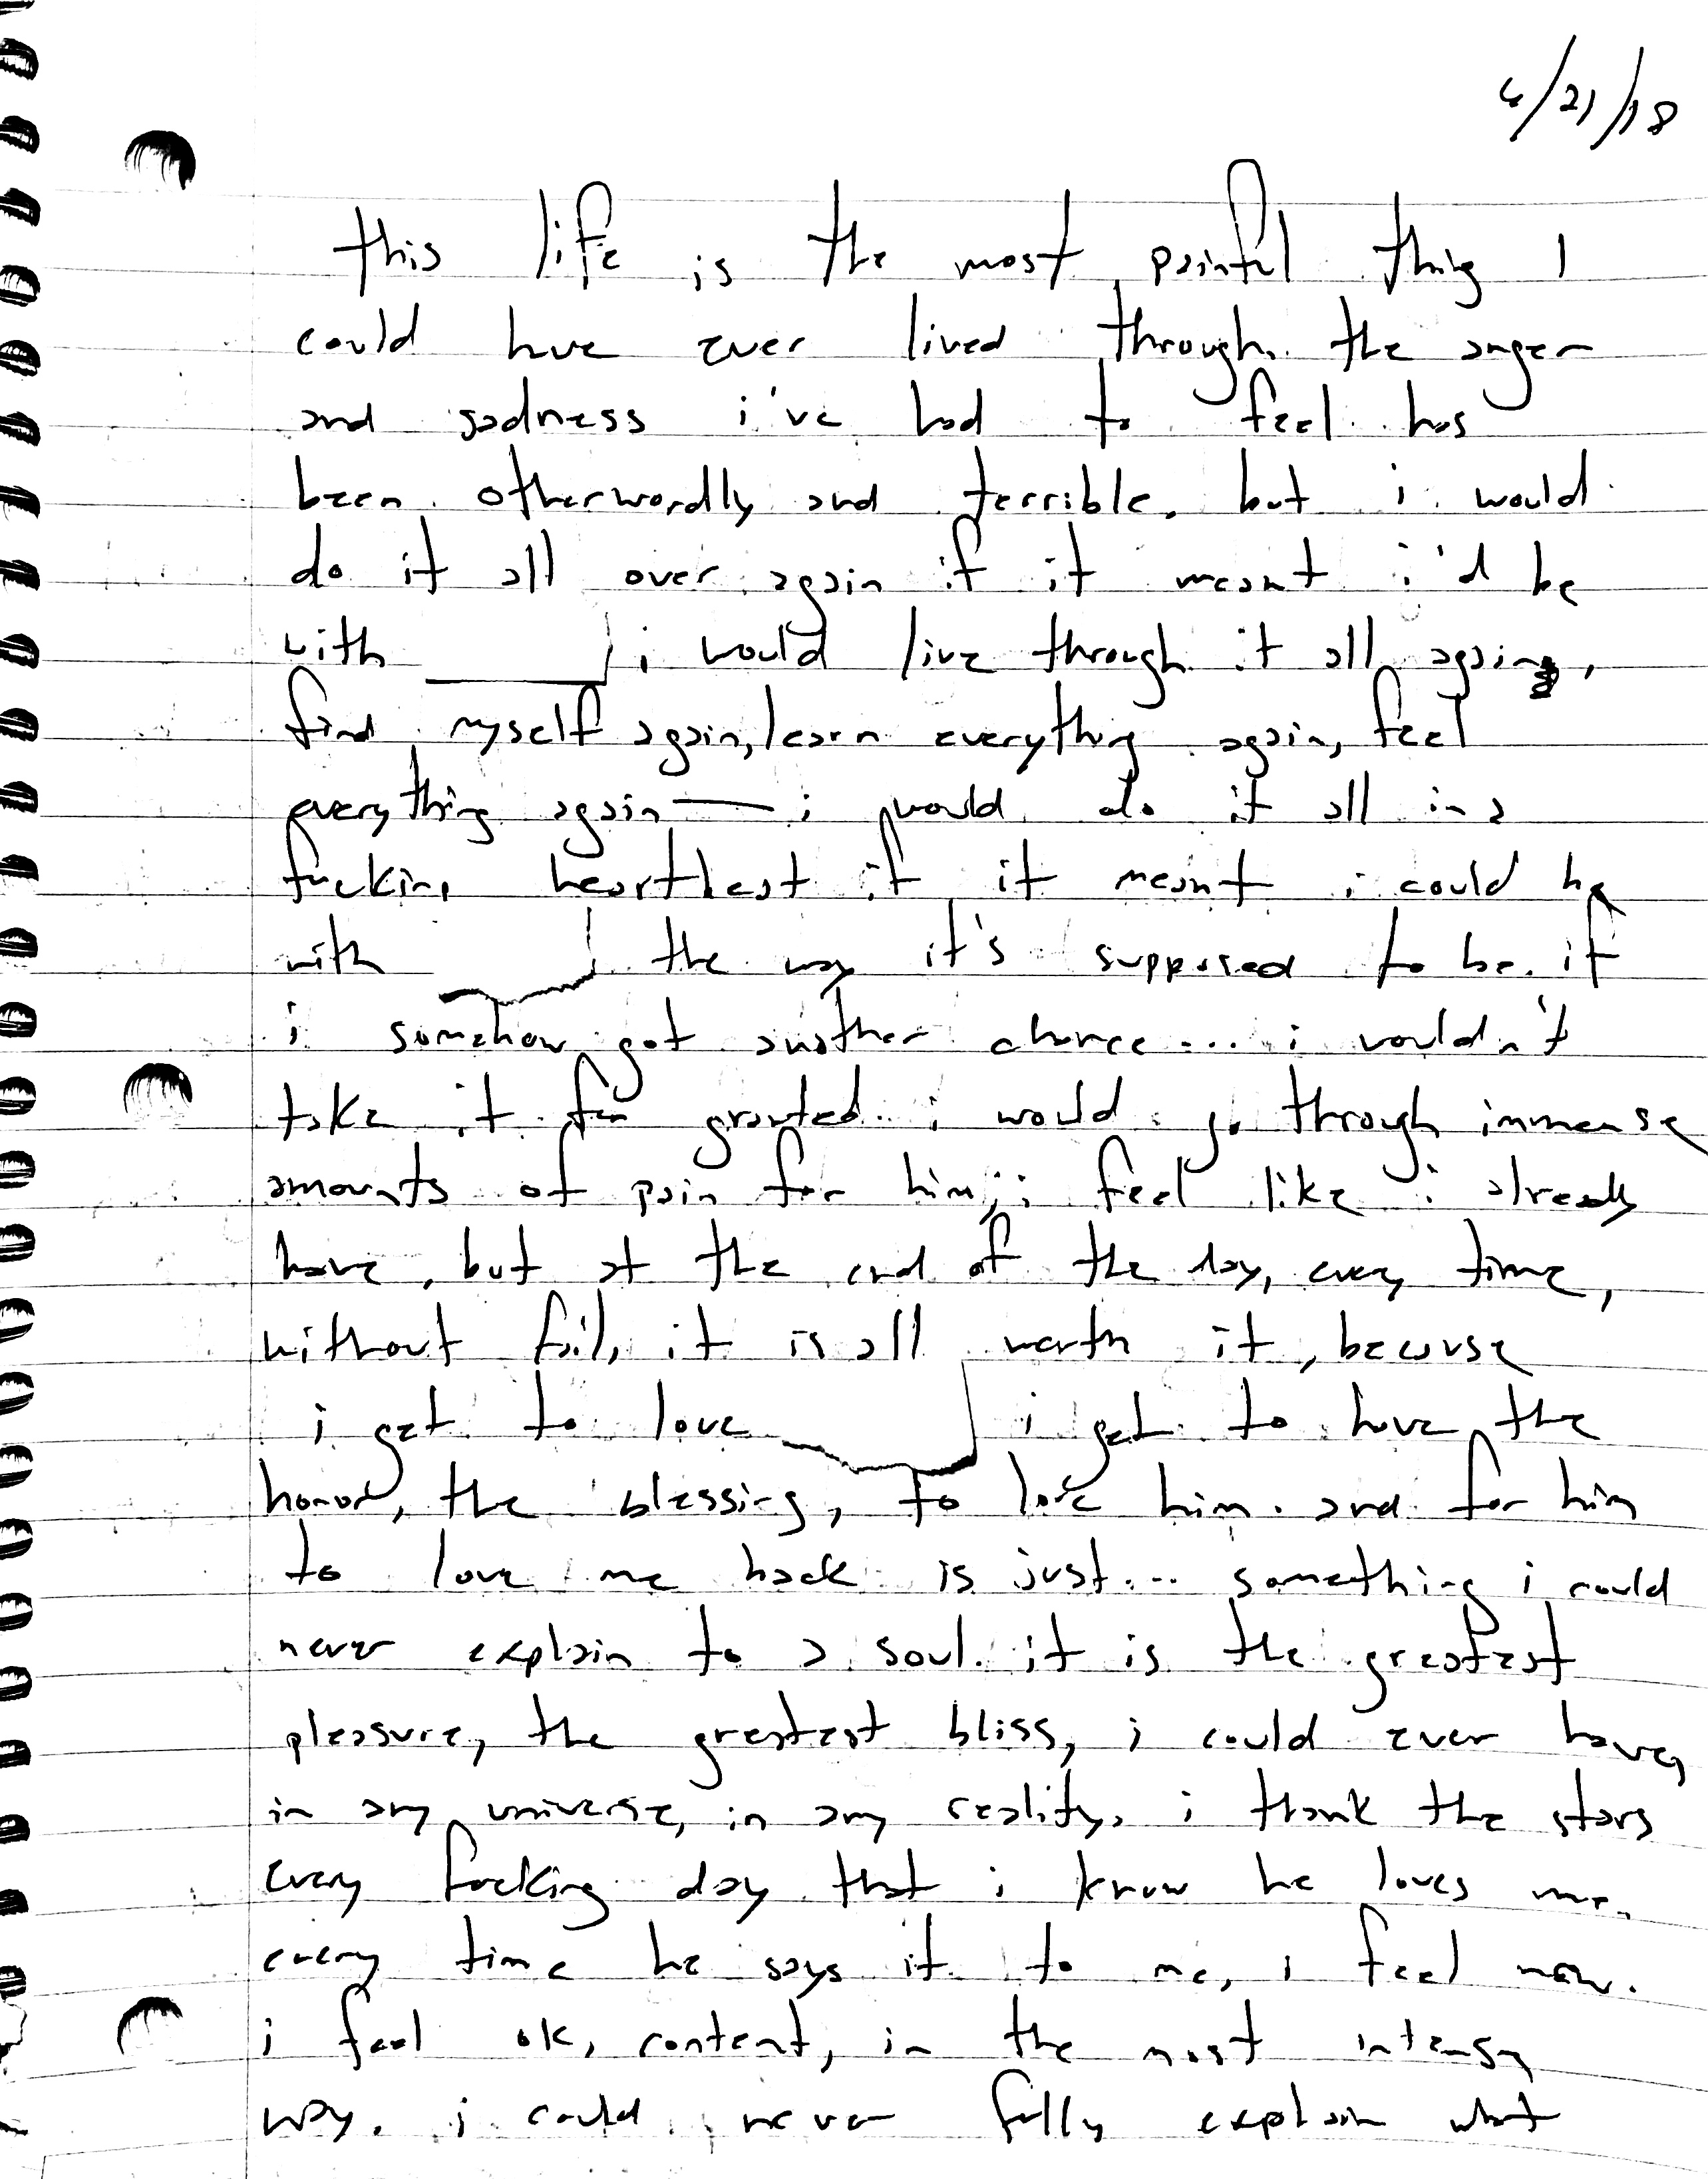 4/21/18
this life is the most painful thing I
could have ever lived through. the anger
and sadness i've had to feel has
been otherwordly and terrible. but i would
do it all over again if it meant i'd be
with i would live through it all again,
find myself again, learn everything again, feel
everything again — i would do it all in a
fucking heartbeat if it meant i could be
with the way it's supposed to be. if
i somehow got another chance... i wouldn't
take it for granted. i would go through immense
amounts of pain for him; i feel like i already
have, but at the end of the day, every time,
without fail, it is all worth it, because
i get to love i get to have the
honor, the blessing, to love him. and for him
to love me back is just... something i could
never explain to a soul. it is the greatest
pleasure, the greatest bliss, i could ever have,
in any universe, in any reality. i thank the stars
every fucking day that i know he loves me.
every time he says it to me, i feel new.
i feel ok, content, in the most intense
way. i could never fully explain what